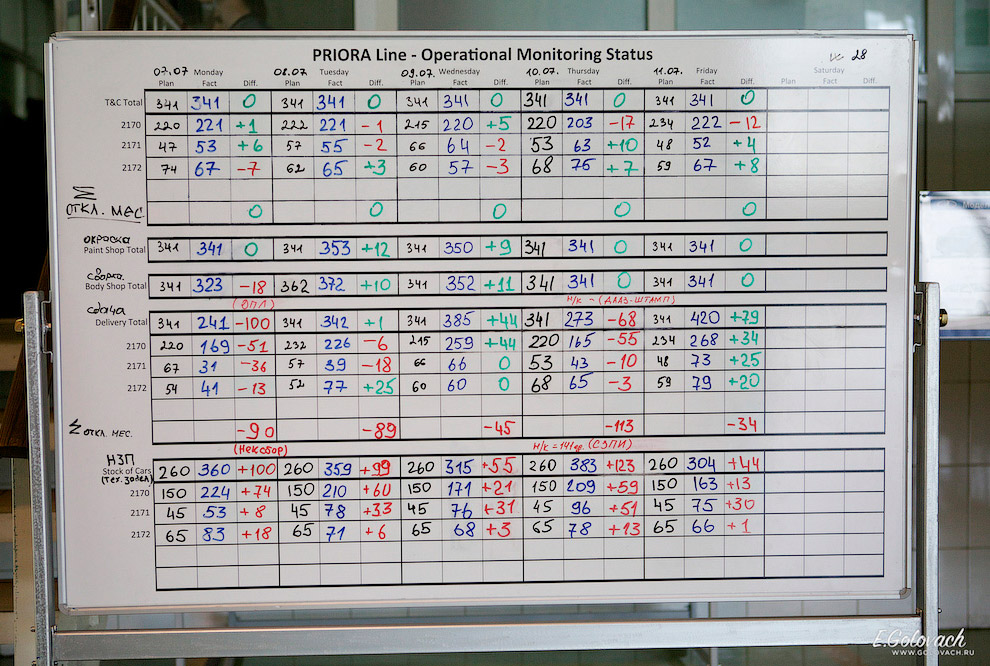 PRIORA Line - Operational Monitoring Status
28
07.07 Monday 08.07. Tuesday 09.07. Wednesday 10.07. Thursday 11.07. Friday Saturday
Plan Fact Diff. Plan Fact Diff. Plan Fact Diff. Plan Fact Diff. Plan Fact Diff. Plan Fact Diff.
T&C Total 341 341 0 341 341 0 341 341 0 341 341 0 341 341 0
2170 220 221 +1 222 221 -1 215 220 +5 220 203 -17 234 222 -12
2171 47 53 +6 57 55 -2 66 64 -2 53 63 +10 48 52 +4
2172 74 67 -7 62 65 +3 60 57 -3 68 75 +7 59 67 +8
Σ
ОТКЛ. МЕС. 0 0 0 0 0
окраска
Paint Shop Total 341 341 0 341 353 +12 341 350 +9 341 341 0 341 341 0
сварка
Body Shop Total 341 323 -18 362 372 +10 341 352 +11 341 341 0 341 341 0
(ОПЛ) Н/К - (ДААЗ-ШТАМП)
сдача
Delivery Total 341 241 -100 341 342 +1 341 385 +44 341 273 -68 341 420 +79
2170 220 169 -51 232 226 -6 215 259 +44 220 165 -55 234 268 +34
2171 67 31 -36 57 39 -18 66 66 0 53 43 -10 48 73 +25
2172 54 41 -13 52 77 +25 60 60 0 68 65 -3 59 79 +20
Σ ОТКЛ. МЕС. -90 -89 -45 -113 -34
(Нексбор) Н/К = 141 др. (СЭПИ)
НЗП
Stock of Cars 260 360 +100 260 359 +99 260 315 +55 260 383 +123 260 304 +44
(тех. задел)
2170 150 224 +74 150 210 +60 150 171 +21 150 209 +59 150 163 +13
2171 45 53 +8 45 78 +33 45 76 +31 45 96 +51 45 75 +30
2172 65 83 +18 65 71 +6 65 68 +3 65 78 +13 65 66 +1
E.Golovach
WWW.GOLOVACH.RU